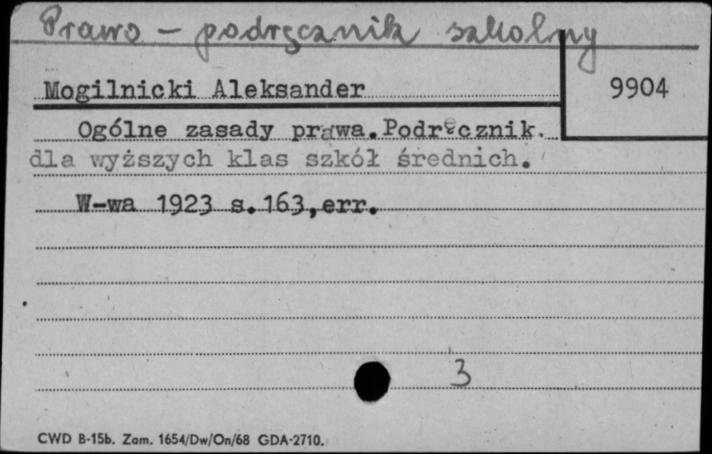 Prawo – podręcznik szkolny
Mogilnicki Aleksander
9904
Ogólne zasady prawa. Podręcznik
dla wyższych klas szkół średnich.
W-wa 1923 s. 163, err.
3
CWD B-15b. Zam. 1654/Dw/On/68 GDA-2710.